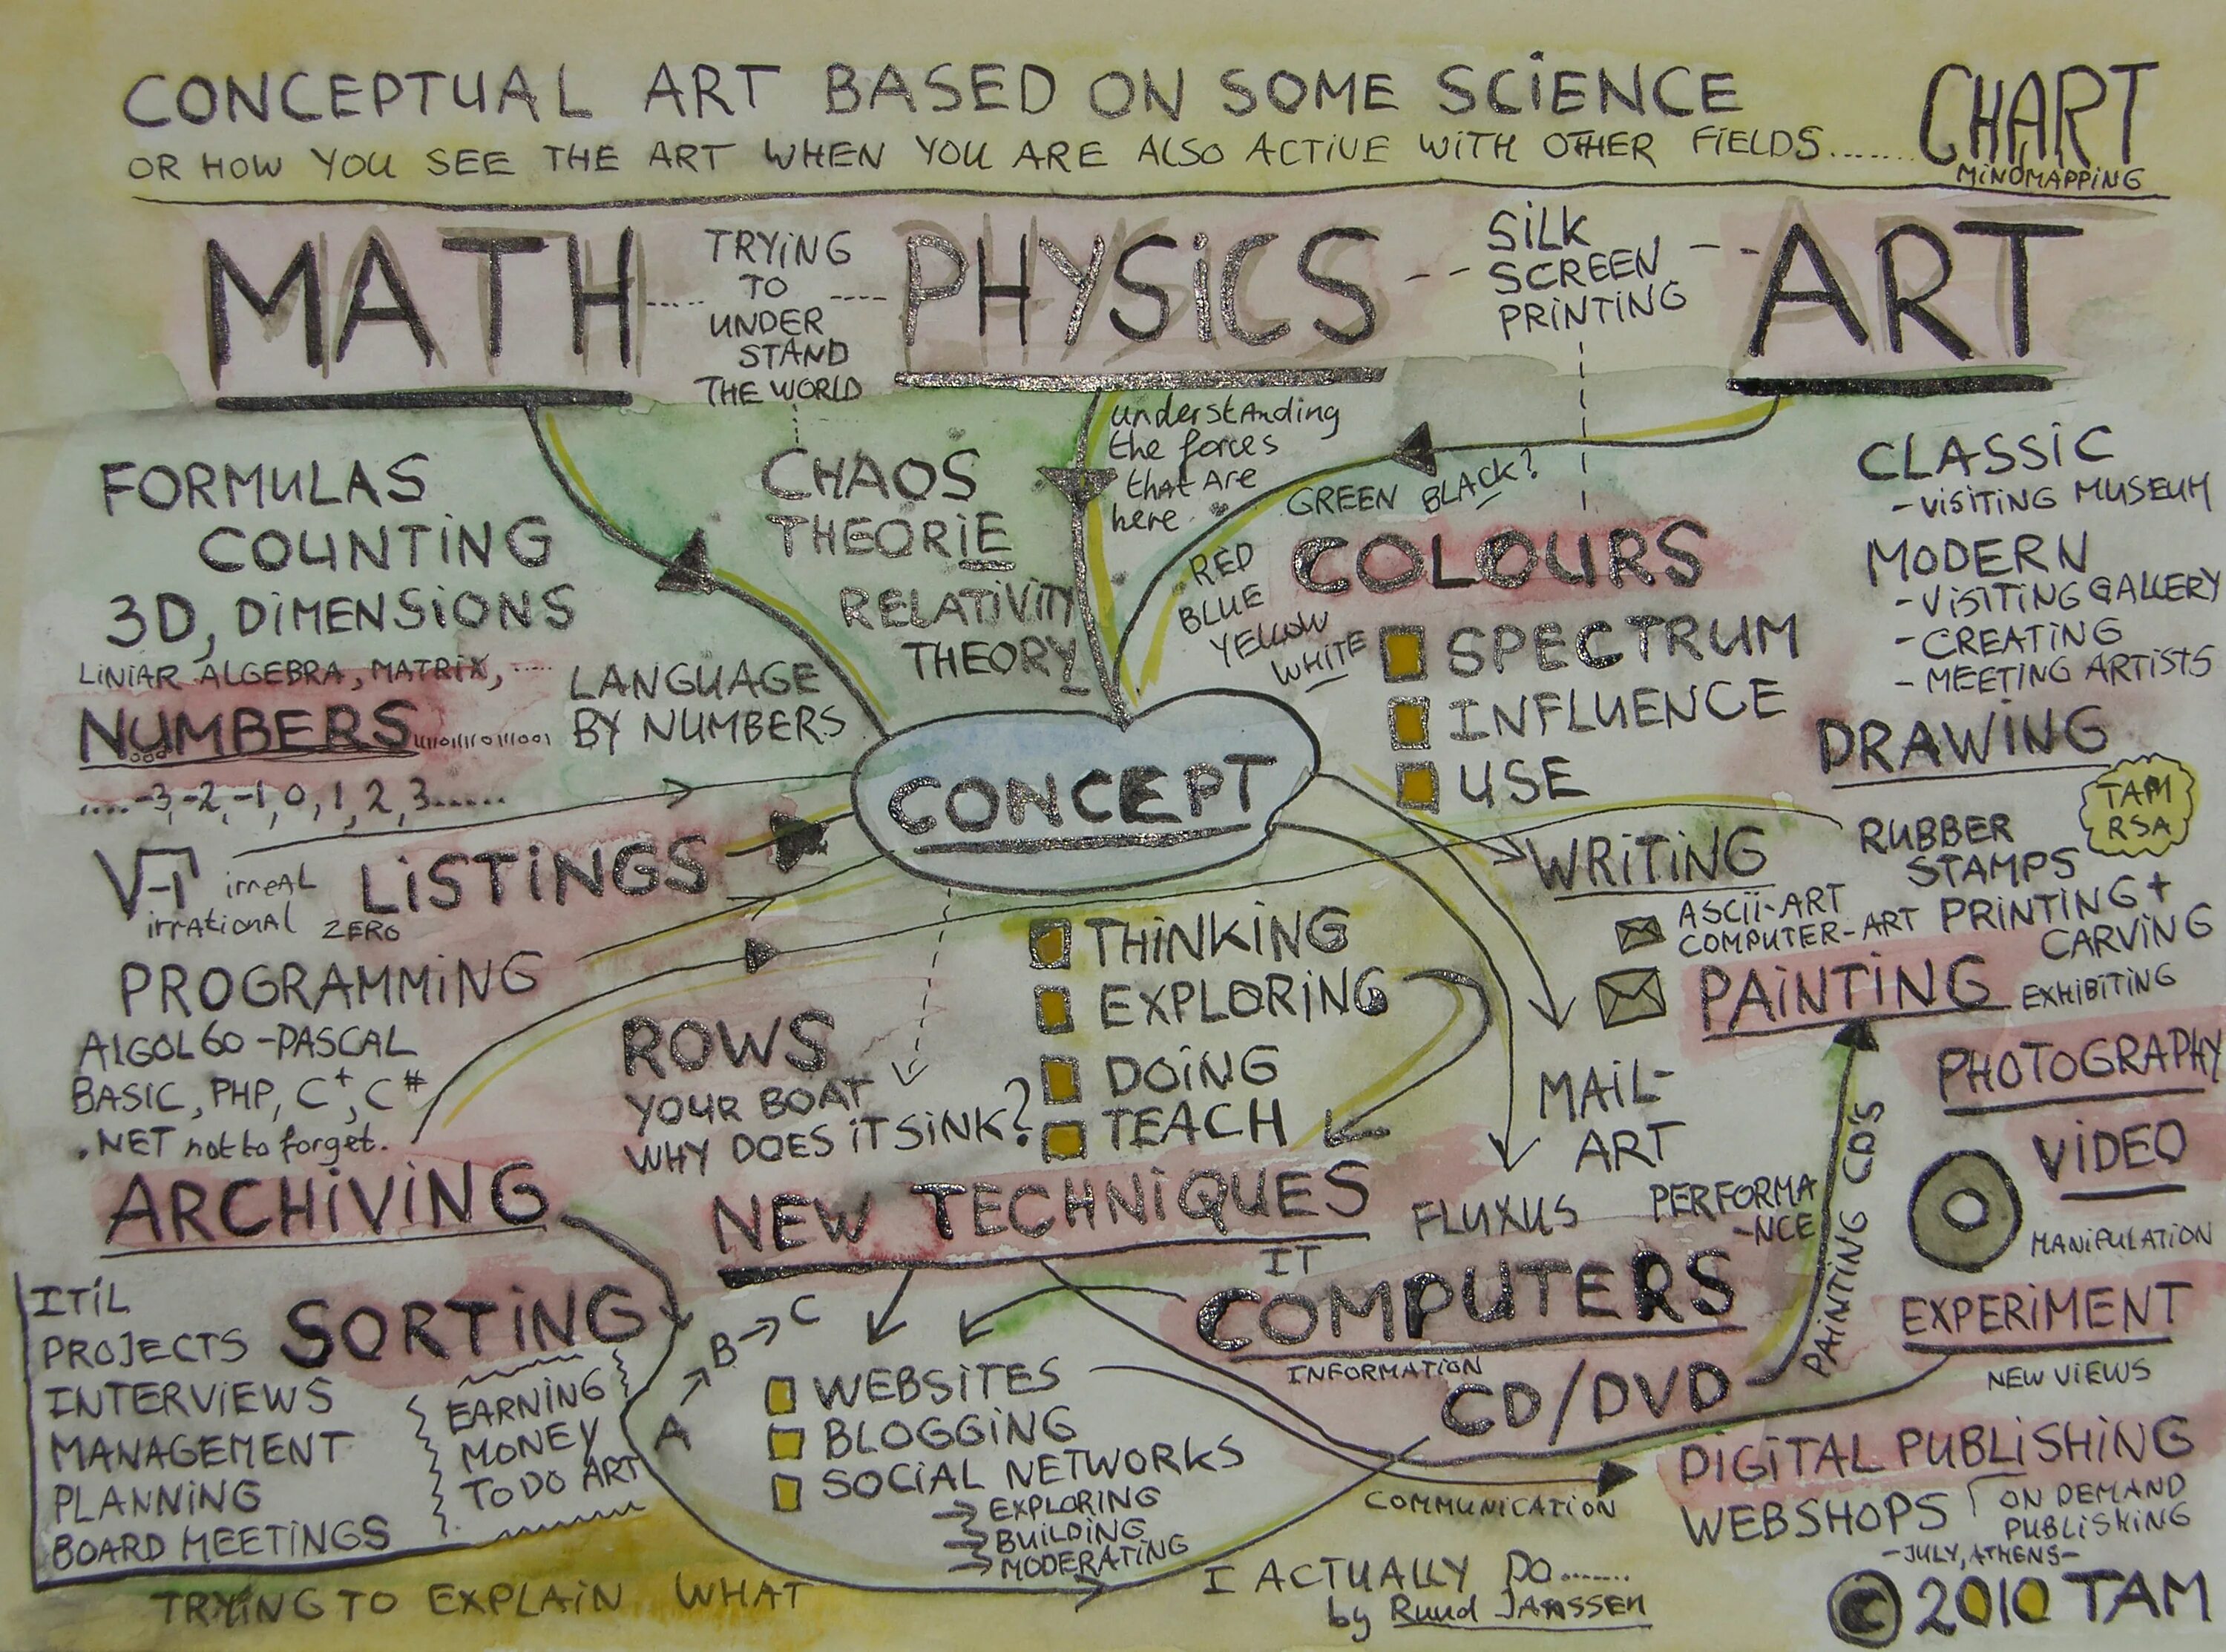 CONCEPTUAL ART BASED ON SOME SCIENCE
OR HOW YOU SEE THE ART WHEN YOU ARE ALSO ACTIVE WITH OTHER FIELDS.......
CHART
MINDMAPPING
MATH
TRYING
TO
UNDER
STAND
THE WORLD
PHYSICS
SILK
SCREEN
PRINTING
ART
FORMULAS
COUNTING
3D, DIMENSIONS
LINIAR ALGEBRA, MATRIX, .....
NUMBERS
LANGUAGE
BY NUMBERS
....-3,-2,-1,0,1,2,3......
√-1
irreAL
irrational
ZERO
CHAOS
THEORIE
RELATIVITY
THEORY
understanding
the forces
that are
here
GREEN BLACK?
RED
BLUE
YELLOW
WHITE
COLOURS
SPECTRUM
INFLUENCE
USE
CLASSIC
- VISITING MUSEUM
MODERN
- VISITING GALLERY
- CREATING
- MEETING ARTISTS
DRAWING
TAM
RSA
CONCEPT
LISTINGS
WRITING
ASCII-ART
COMPUTER-ART
RUBBER
STAMPS
PRINTING +
CARVING
EXHIBITING
PAINTING
PROGRAMMING
ALGOL60-PASCAL
BASIC, PHP, C+, C#
.NET not to forget.
ROWS
YOUR BOAT
WHY DOES IT SINK?
THINKING
EXPLORING
DOING
TEACH
MAIL-
ART
PHOTOGRAPHY
VIDEO
MANIPULATION
ARCHIVING
NEW TECHNIQUES
FLUXUS
PERFORMA
-NCE
PAINTING CDS
IT
COMPUTERS
INFORMATION
CD/DVD
EXPERIMENT
NEW VIEWS
ITIL
PROJECTS
INTERVIEWS
MANAGEMENT
PLANNING
BOARD MEETINGS
SORTING
EARNING
MONEY
TO DO ART
A → B → C
WEBSITES
BLOGGING
SOCIAL NETWORKS
→ EXPLORING
→ BUILDING
→ MODERATING
COMMUNICATION
DIGITAL PUBLISHING
WEBSHOPS
ON DEMAND
PUBLISHING
-JULY, ATHENS-
TRYING TO EXPLAIN WHAT
I ACTUALLY DO.......
by Ruud JANSSEN
© 2010 TAM